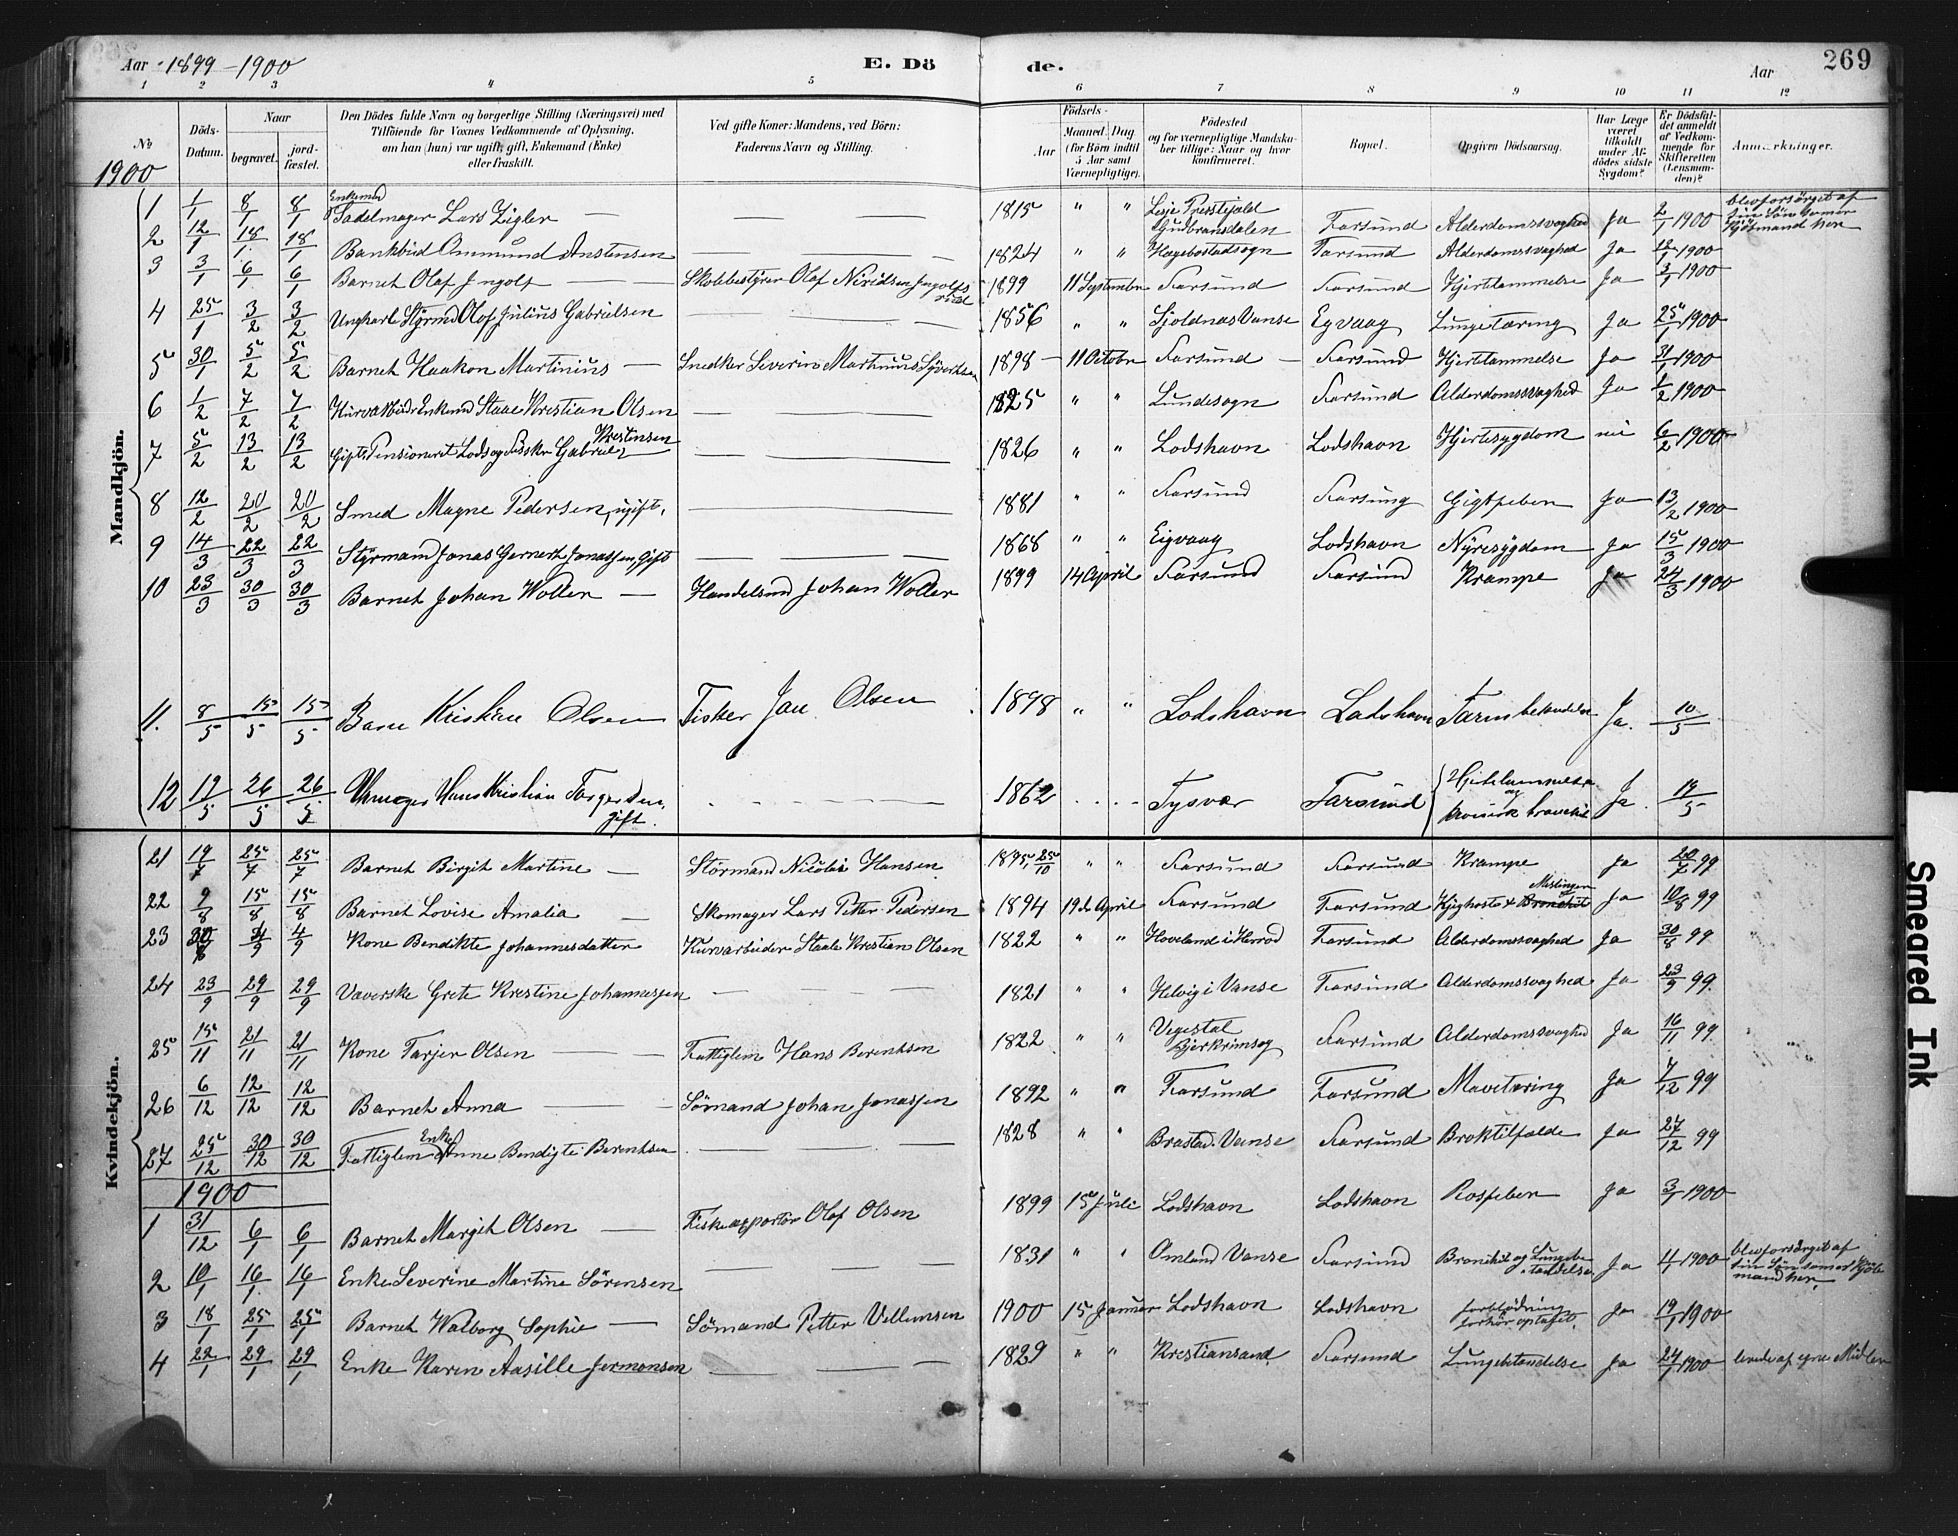 Aar 1899-1900 E. Dö
de. Aar 269
1 2 3 4 5 6 7 8 9 10 11 12
No
Döds-Datum.
Naar
begravet.
jord-fæstet.
Den Dödes fulde Navn og borgerlige Stilling (Næringsvei) med
Tilföiende for Voxnes Vedkommende af Oplysning,
om han (hun) var ugift, gift, Enkemand (Enke)
eller fraskilt.
Ved gifte Koner: Mandens, ved Börn:
Faderens Navn og Stilling.
Födsels-
Aar
Maaned. Dag
(for Börn indtil
5 Aar samt
Værnepligtige).
Födested
og for værnepligtige Mandska-
ber tillige: Naar og hvor
konfirmeret.
Bopæl.
Opgiven Dödsaarsag.
Har Læge
været
tilkaldt
under Af-
dödes sidste
Sygdom?
Er Dödsfal-
det anmeldt
af Vedkom-
mende for
Skifteretten
(Lensman-
den)?
Anmærkninger.
Mandkjön.
1900
1 1/1 8/1 8/1 Enkemd Sadelmager Lars Zigler — — — 1815 " " Lesje Presstejeld Gudbrandsdalen Farsund Alderdomssvaghed Ja 2/1 1900 blev forsörget af sin Sön som er Kjöbmand her
2 12/1 18/1 18/1 Bankbud Ommund Anstensen — — — 1824 " " Hægebostadsogn Farsund Alderdomssvaghed Ja 12/1 1900
3 3/1 6/1 6/1 Barnet Olaf Ingolf — — Skolebestyrer Olaf 1899 11 September Farsund Farsund Hjertelammelse Ja 3/1 1900
4 25/1 3/2 3/2 Ungkarl Styrmd Olof Julius Gabrielsen — — 1856 " " Sjoldnas Vanse Egvaag Lungetæring Ja 25/1 1900
5 30/1 5/2 5/2 Barnet Haakon Martinius — Snedker Severin Martinius Syvertsen 1898 — 11 Octobr Farsund — Farsund Hjertelammelse Ja 31/1 1900
6 1/2 7/2 7/2 Kurvarbeider Enkemd Staale Kristian Olsen — — 1825 " " Lundesogn Farsund Alderdomssvaghed Ja 1/2 1900
7 5/2 13/2 13/2 Gift, Pensioneret Lods og Fisker Gabriel Kristensen — — 1826 " " Lodshavn Lodshavn Hjertesygdom nei 6/2 1900
8 12/2 20/2 20/2 Smed Magne Pedersen, ugift, — — 1881 " " Farsund Farsung Gigtfeber Ja 13/2 1900
9 14/3 22/3 22/3 Styrmand Jonas Gerhert Jonassen, gift — — 1868 " " Eigvaag Lodshavn Nyresygdom Ja 15/3 1900
10 23/3 30/3 30/3 Barnet Johan Woller — Handelsmd Johan Woller 1899 14 April Farsund Farsund Krampe Ja 24/3 1900
11. 8/5 15/5 15/5 Barn Kristine Olsen Fisker Jan Olsen 1898 " " Lodshavn Lodshavn Tarmbetændelse Ja. 10/5
12 19/5 26/5 26/5 Urmager Hans Kristian Torgersen, gift. - - - 1862 . . . . Tysvær Farsund Hjertelammelse og kronisk bronchit Ja. 19/5
Kvindekjön.
21 19/7 25/7 25/7 Barnet Birgit Martine — Störmand Nicolai Hansen 1895 25/10 " " Farsund Farsund Krampe Ja 20/7 99
22 9/8 15/8 15/8 Barnet Lovise Amalia — Skomager Lars Petter Pedersen 1894 19de April Farsund Farsund Kighoste & Bronchit Mislinger Ja 10/8 99
23 30/8 4/9 4/9 Kone Bendikte Johannesdatter Kurvarbeider Staale Kristian Olsen 1822 " " Hoveland i Herrad Farsund Alderdomssvaghed Ja 30/8 99
24 23/9 29/9 29/9 Væverske Grete Kristine Johannessen — — — 1821 " " Helvig i Vanse Farsund Alderdomssvaghed Ja 23/9 99.
25 15/11 21/11 21/11 Kone Tarjer Olsen — — Fattiglem Hans Berentsen 1822 " " Vegestøl Bjerkrimsog Farsund Alderdomssvaghed Ja 16/11 99
26 6/12 12/12 12/12 Barnet Anna — — Sömand Johan Jonassen 1892 " " Farsund Farsund Mavetæring Ja 7/12 99
27 25/12 30/12 30/12 Fattiglem Enke Anne Bendigte Berentsen — — — 1828 " " Brastad. Vanse Farsund Broktilfælde Ja 27/12 99
1900
1 31/12 6/1 6/1 Barnet Margit Olsen — Fiskeexportör Olof Olsen 1899 15 Juli Lodshavn Lodshavn Rosfeber Ja 3/1 1900
2 10/1 16/1 16/1 Enke Severine Martine Sörensen — — — 1831 " " Omland Vanse Farsund Bronchit og Lungebetændelse Ja 11/1 1900 blev forsörget af sin Sön som er Kjöbmand her.
3 18/1 25/1 25/1 Barnet Walborg Sophie — Sömand Petter Villumsen 1900 15 Januar Lodshavn Lodshavn forblödning Ja 19/1 1900
4 22/1 29/1 29/1 Enke Karen Aasille Jermonsen — — — 1829 " " Kristiansand Farsund Lungebetændelse Ja 24/1 1900 levede af egne Midler
Smeared Ink